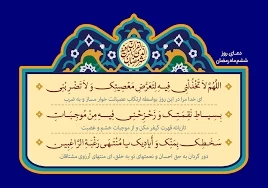 دعای روز
ششم ماه رمضان
اَللّهُمَّ لا تَخْذُلْنی فیهِ لِتَعَرُّضِ مَعْصِیَتِکَ وَ لا تَضْرِبْنی
ای خدا مرا در این روز بواسطه ارتکاب عصیانت خوار مساز و به ضرب
بِسِیاطِ نَقِمَتِکَ وَ زَحْزِحْنی فیهِ مِنْ مُوجِباتِ
تازیانه قهرت کیفر مکن و از موجبات خشم و غضبت
سَخَطِکَ بِمَنِّکَ وَ اَیادیکَ یا مُنْتَهی رَغْبَةِ الرّاغِبینَ
دور گردان به حق احسان و نعمتهای تو به خلق، ای منتهای آرزوی مشتاقان.